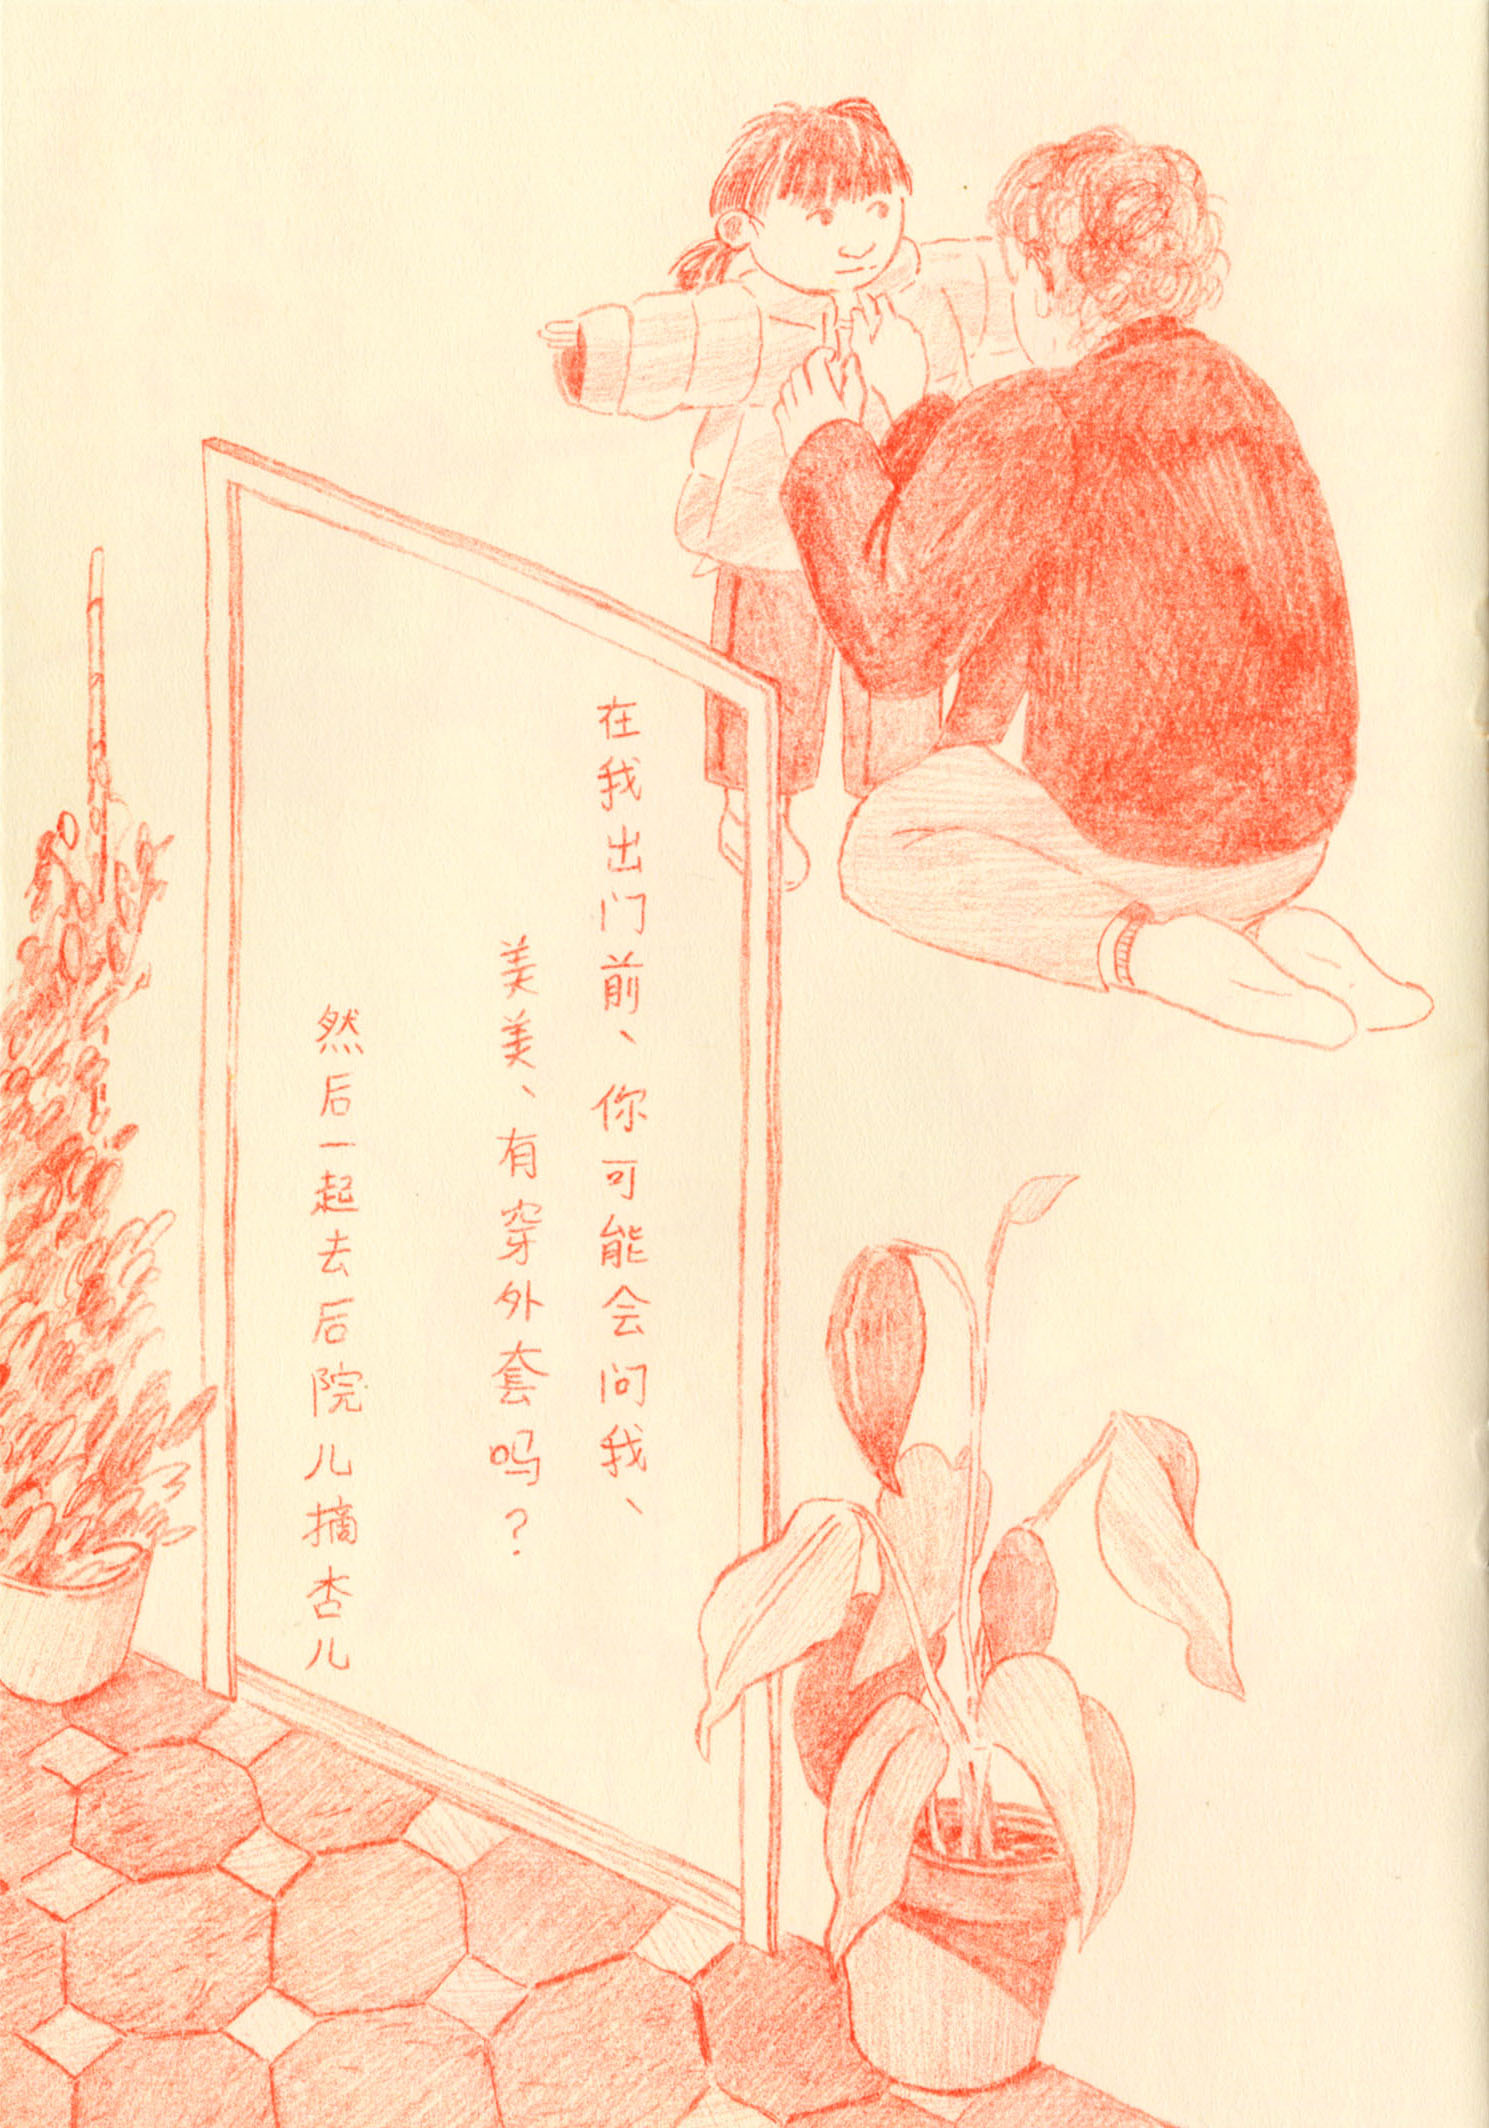 在我出门前、你可能会问我、
美美、有穿外套吗？
然后一起去后院儿摘杏儿